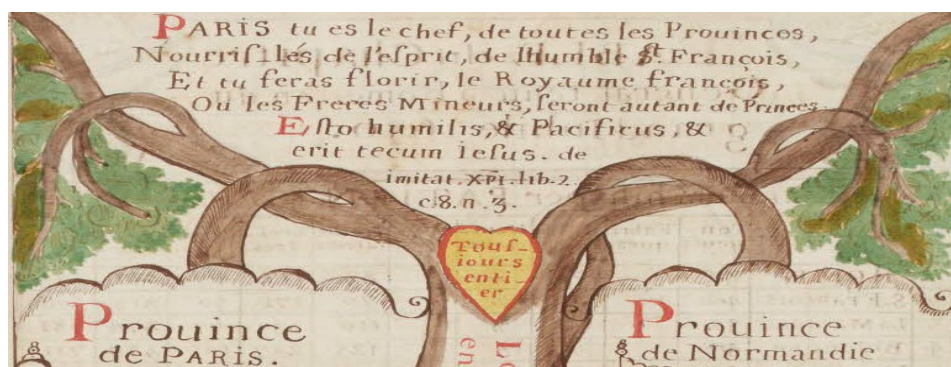 PARIS tu es le chef, de toutes les Prouinces,
Nourris_lés de l'esprit, de lhumble St. François,
Et tu feras florir, le Royaume françois,
Ou les Freres Mineurs, seront autant de Princes.
Esto humilis, & Pacificus, &
erit tecum iesus. de
imitat. XPI. lib. 2.
c. 8. n. 3.
Tous-
iours
enti-
er
Prouince
de PARIS.
Prouince
de Normandie